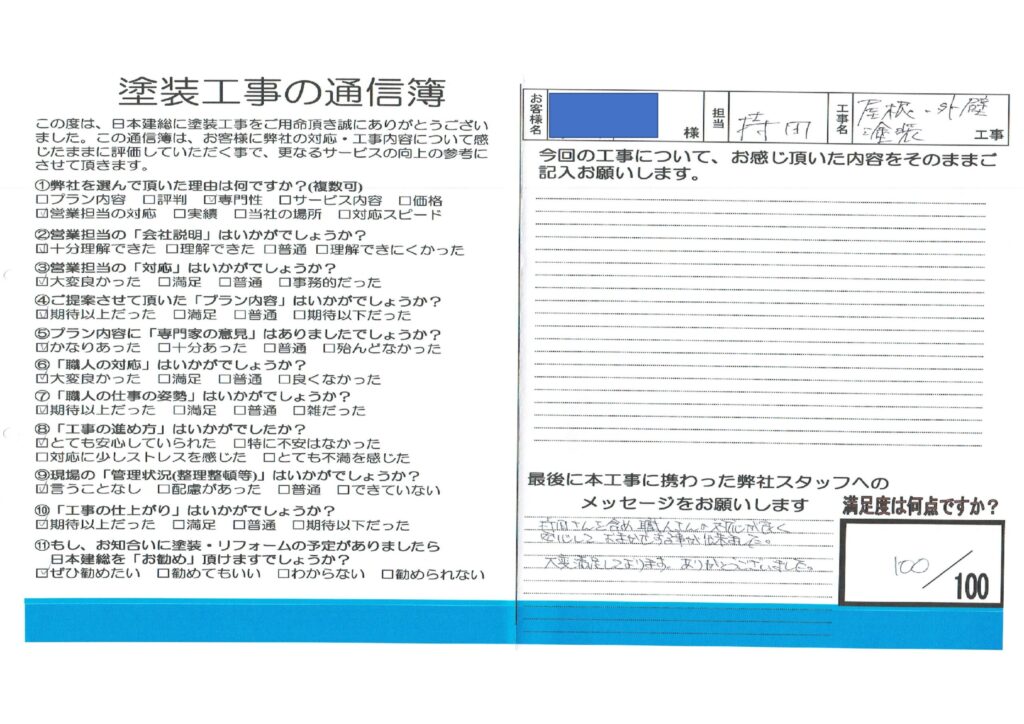 塗装工事の通信簿
この度は、日本建総に塗装工事をご用命頂き誠にありがとうござい
ました。この通信簿は、お客様に弊社の対応・工事内容について感
じたままに評価していただく事で、更なるサービスの向上の参考に
させて頂きます。
①弊社を選んで頂いた理由は何ですか？(複数可)
☐プラン内容 ☐評判 ☑専門性 ☐サービス内容 ☐価格
☑営業担当の対応 ☐実績 ☐当社の場所 ☐対応スピード
②営業担当の「会社説明」はいかがでしょうか？
☑十分理解できた ☐理解できた ☐普通 ☐理解できにくかった
③営業担当の「対応」はいかがでしょうか？
☑大変良かった ☐満足 ☐普通 ☐事務的だった
④ご提案させて頂いた「プラン内容」はいかがでしょうか？
☑期待以上だった ☐満足 ☐普通 ☐期待以下だった
⑤プラン内容に「専門家の意見」はありましたでしょうか？
☑かなりあった ☐十分あった ☐普通 ☐殆んどなかった
⑥「職人の対応」はいかがでしょうか？
☑大変良かった ☐満足 ☐普通 ☐良くなかった
⑦「職人の仕事の姿勢」はいかがでしょうか？
☑期待以上だった ☐満足 ☐普通 ☐雑だった
⑧「工事の進め方」はいかがでしたか？
☑とても安心していられた ☐特に不安はなかった
☐対応に少しストレスを感じた ☐とても不満を感じた
⑨現場の「管理状況(整理整頓等)」はいかがでしょうか？
☑言うことなし ☐配慮があった ☐普通 ☐できていない
⑩「工事の仕上がり」はいかがでしょうか？
☑期待以上だった ☐満足 ☐普通 ☐期待以下だった
⑪もし、お知合いに塗装・リフォームの予定がありましたら
日本建総を「お勧め」頂けますでしょうか？
☑ぜひ勧めたい ☐勧めてもいい ☐わからない ☐勧められない
お客様名 様 担当 持田 工事名 屋根・外壁
塗装 工事
今回の工事について、お感じ頂いた内容をそのままご
記入お願いします。
最後に本工事に携わった弊社スタッフへの
メッセージをお願いします
満足度は何点ですか？
持田さんを含め職人さんの対応が良く
安心しておまかせする事が出来ました。
大変満足しております。ありがとうございました。
100／100